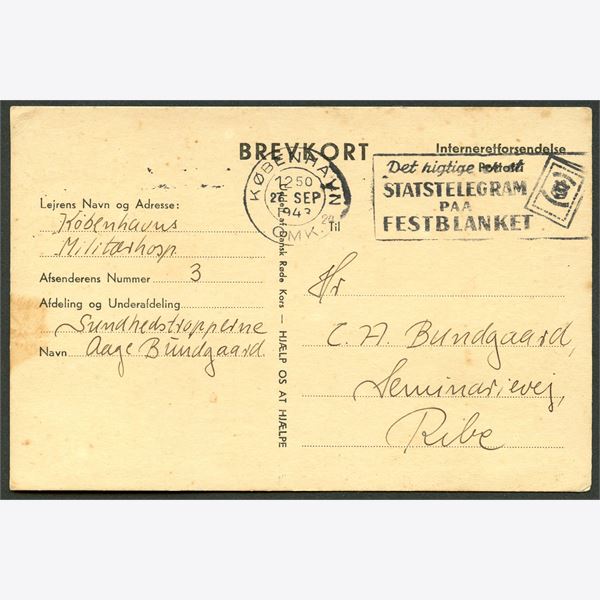 BREVKORT
Interneretforsendelse
KØBENHAVN
1250
SEP
1943
OMK.
Det rigtige
STATSTELEGRAM
PAA
FESTBLANKET
Lejrens Navn og Adresse:
Københavns
Militærhosp
Afsenderens Nummer 3
Afdeling og Underafdeling
Sundhedstropperne
Navn Aage Bundgaard
af Dansk Røde Kors — HJÆLP OS AT HJÆLPE
Til
Hr
C. A. Bundgaard,
Seminarievej,
Ribe